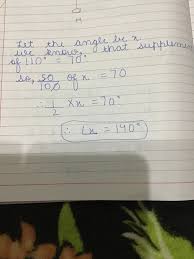 H
Let the angle be x.
we know, that supplement
of 110° = 70°
so, 50/100 of x = 70
∴ 1/2 × x = 70°
∴ Lx = 140°